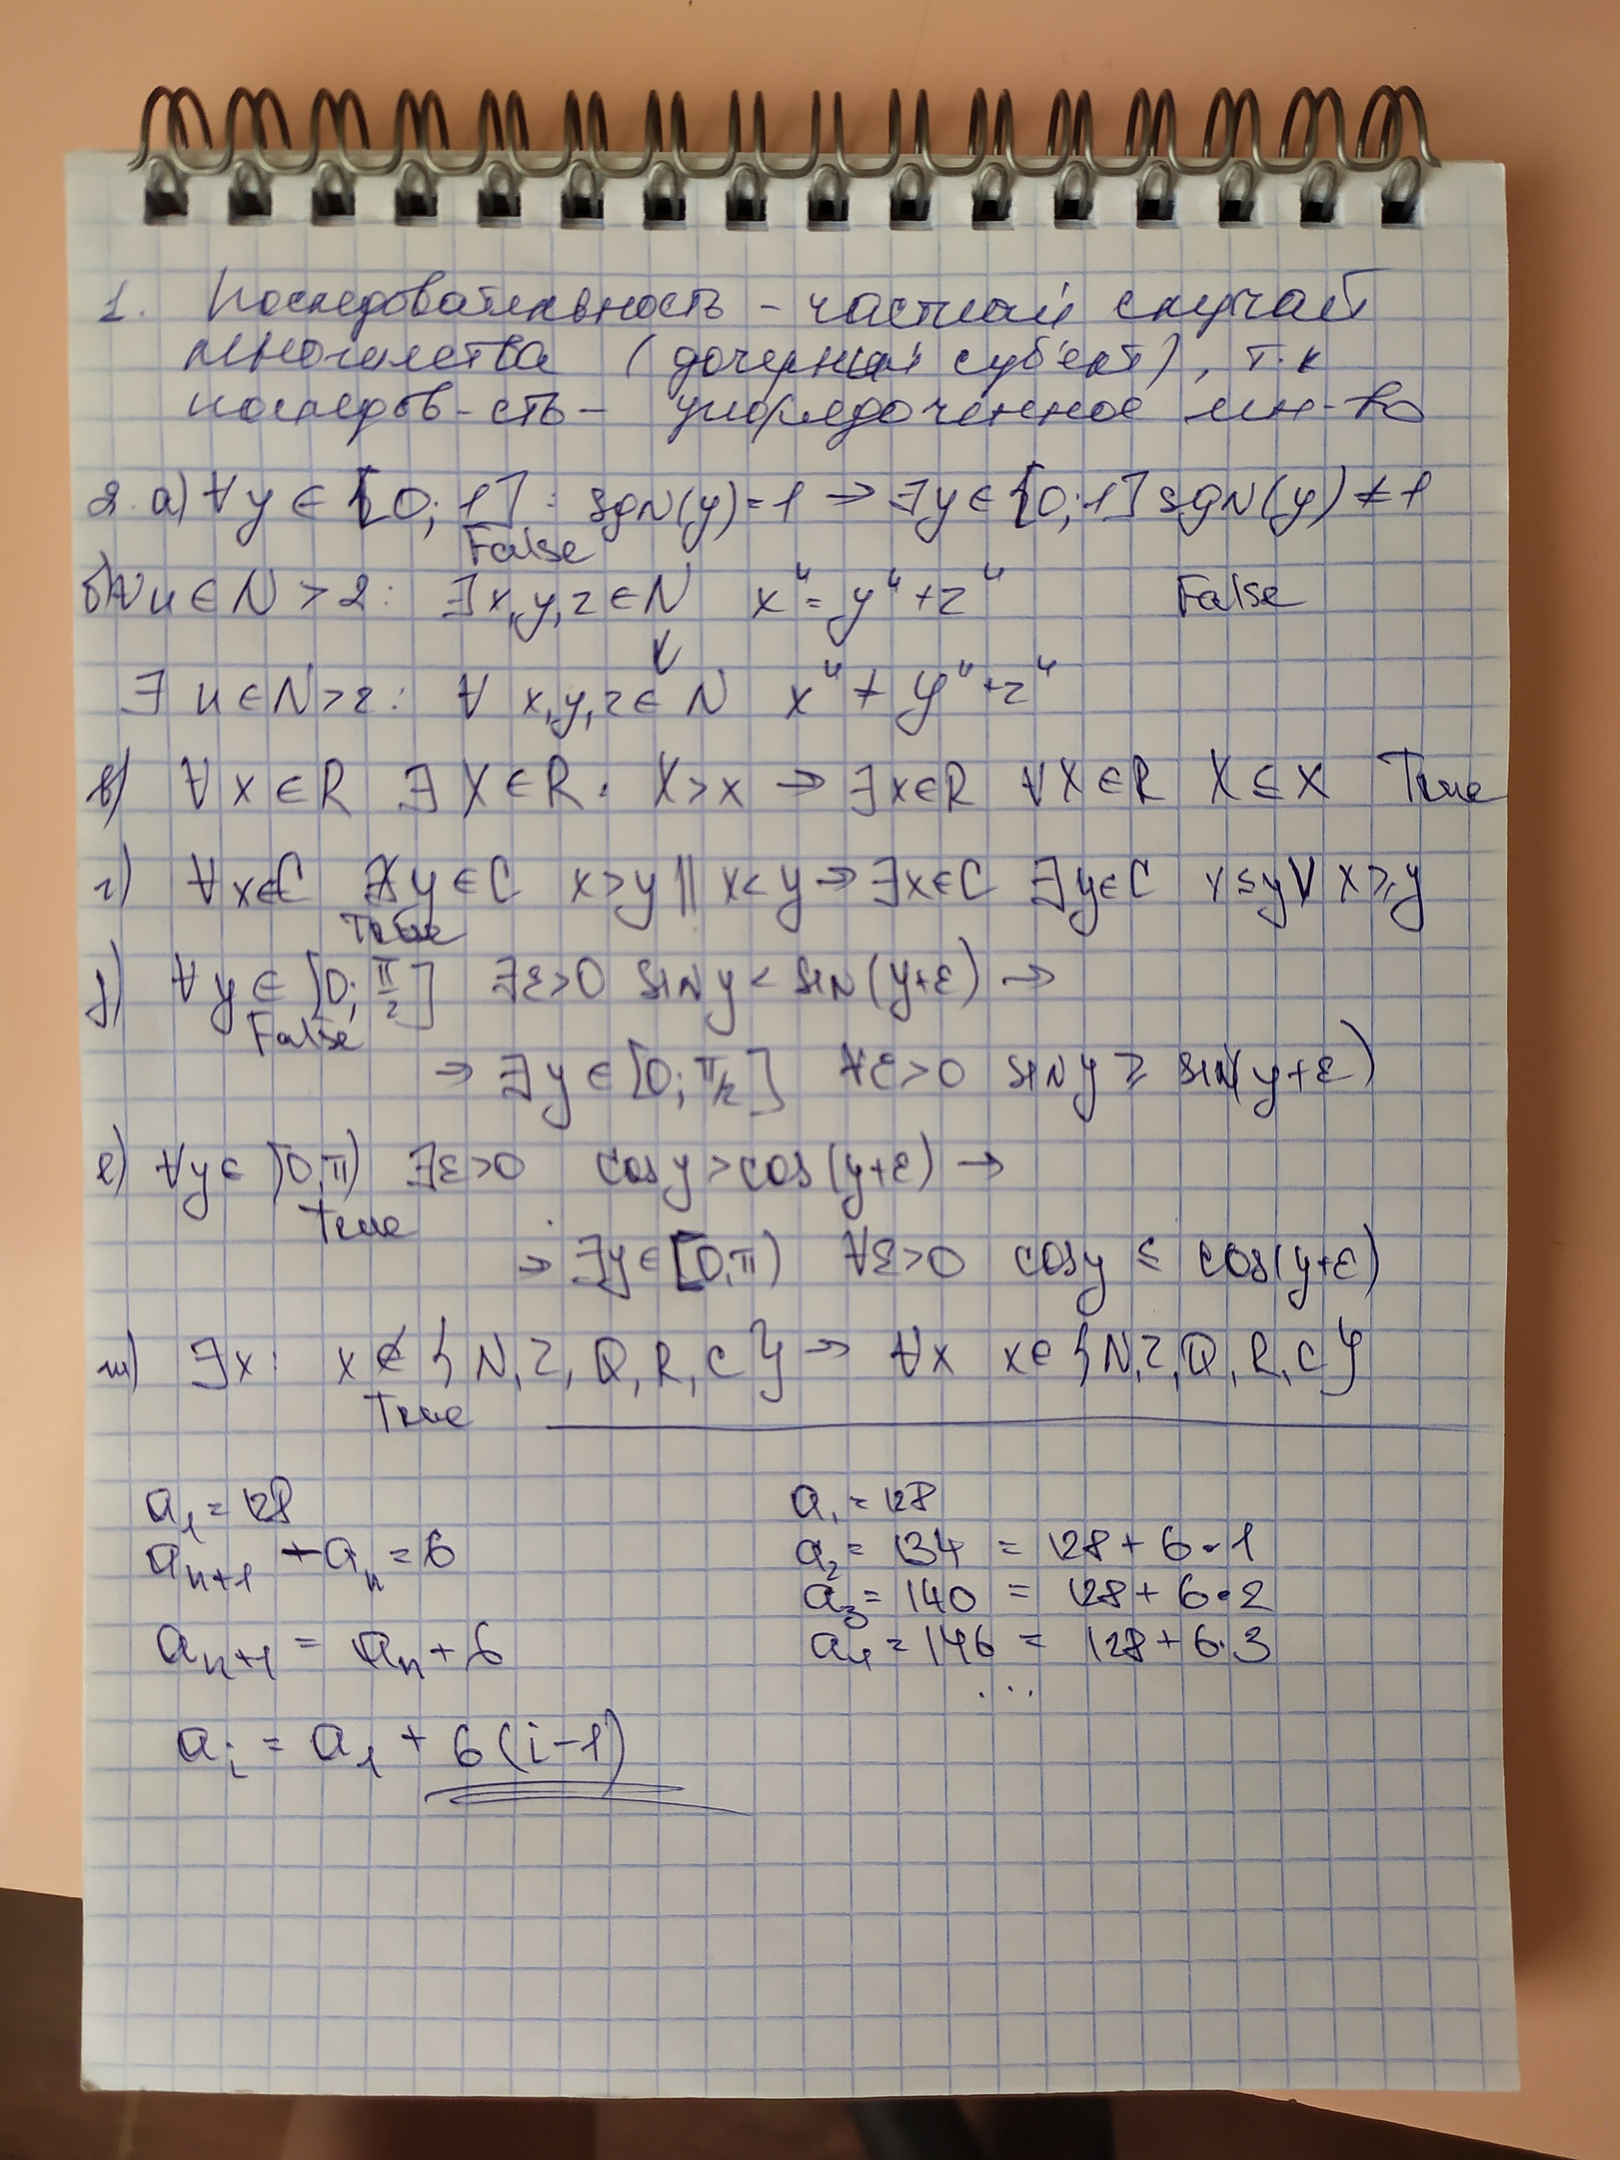 1. Последовательность - частный случай
множества (дочерний субъект), т.к
последов-сть - упорядоченное мн-во
2. а) ∀y ∈ [0; 1] : sgn(y)=1 → ∃y ∈ [0; 1] sgn(y) ≠ 1
False
б) ∀n ∈ N > 2 : ∃x,y,z ∈ N x^n = y^n + z^n False
↓
∃ n ∈ N > 2 : ∀ x,y,z ∈ N x^n ≠ y^n + z^n
в) ∀ x ∈ R ∃ X ∈ R : X > x → ∃ x ∈ R ∀X ∈ R X ≤ x True
г) ∀ x∈C ∄ y ∈ C x>y || x<y → ∃x∈C ∃y∈C x≤y V x≥y
True
д) ∀ y ∈ [0; π/2] ∃ε>0 sin y < sin(y+ε) →
False
→ ∃ y ∈ [0; π/2] ∀ε>0 sin y ≥ sin(y+ε)
е) ∀y∈ [0,π) ∃ε>0 cos y > cos(y+ε) →
True
→ ∃y ∈ [0,π) ∀ε>0 cos y ≤ cos(y+ε)
ж) ∃x: x ∉ {N, Z, Q, R, C} → ∀x x∈ {N, Z, Q, R, C}
True
a₁ = 128
aₙ₊₁ - aₙ = 6
aₙ₊₁ = aₙ + 6
aᵢ = a₁ + 6(i-1)
a₁ = 128
a₂ = 134 = 128 + 6·1
a₃ = 140 = 128 + 6·2
a₄ = 146 = 128 + 6·3
...